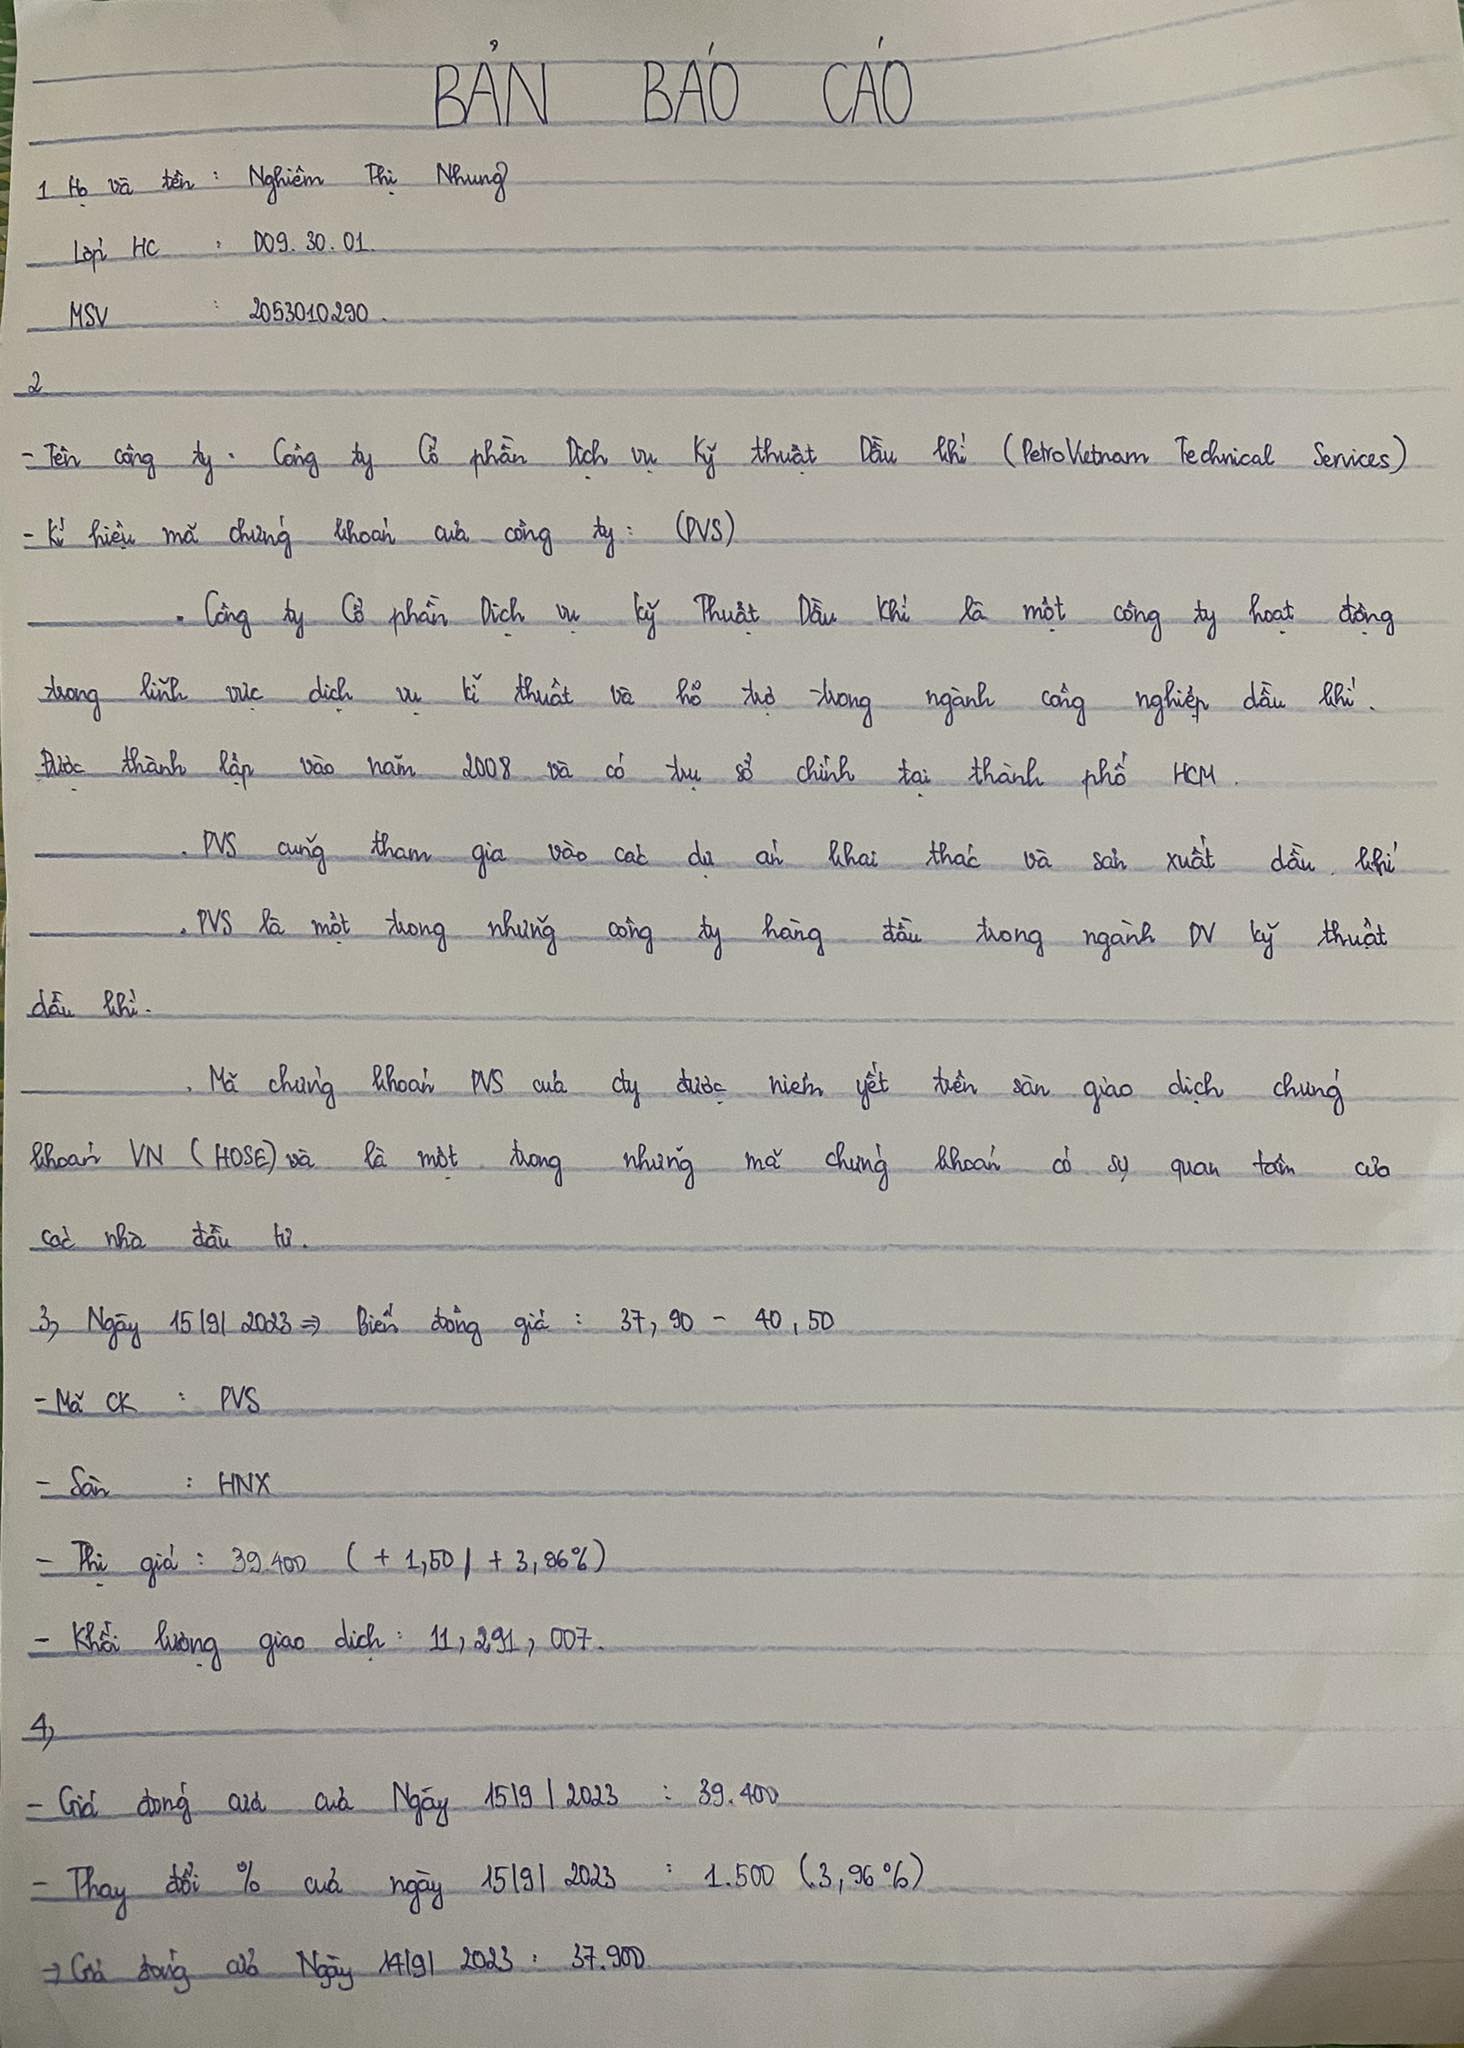 BẢN BÁO CÁO
1 Họ và tên : Nghiêm Thị Nhung
Lớp HC : D09.30.01.
MSV : 2053010290.
2
- Tên công ty. Công ty Cổ phần Dịch vụ Kỹ thuật Dầu khí (PetroVietnam Technical Services)
- Kí hiệu mã chứng khoán của công ty : (PVS)
. Công ty Cổ phần Dịch vụ Kỹ Thuật Dầu Khí là một công ty hoạt động
trong lĩnh vực dịch vụ kĩ thuật và hỗ trợ trong ngành công nghiệp dầu khí.
Được thành lập vào năm 2008 và có trụ sở chính tại thành phố HCM.
. PVS cũng tham gia vào các dự án khai thác và sản xuất dầu khí
. PVS là một trong những công ty hàng đầu trong ngành DV kỹ thuật
dầu khí.
. Mã chứng khoán PVS của cty được niêm yết trên sàn giao dịch chứng
khoán VN (HOSE) và là một trong những mã chứng khoán có sự quan tâm của
các nhà đầu tư.
3, Ngày 15/9/2023 ⇒ Biến động giá : 37,90 - 40,50
- Mã CK : PVS
- Sàn : HNX
- Thị giá : 39.400 (+1,50/+3,96%)
- Khối lượng giao dịch : 11,291,007.
4,
- Giá đóng cửa của Ngày 15/9/2023 : 39.400
- Thay đổi % của ngày 15/9/2023 : 1.500 (3,96%)
→ Giá đóng cửa Ngày 14/9/2023 : 37.900